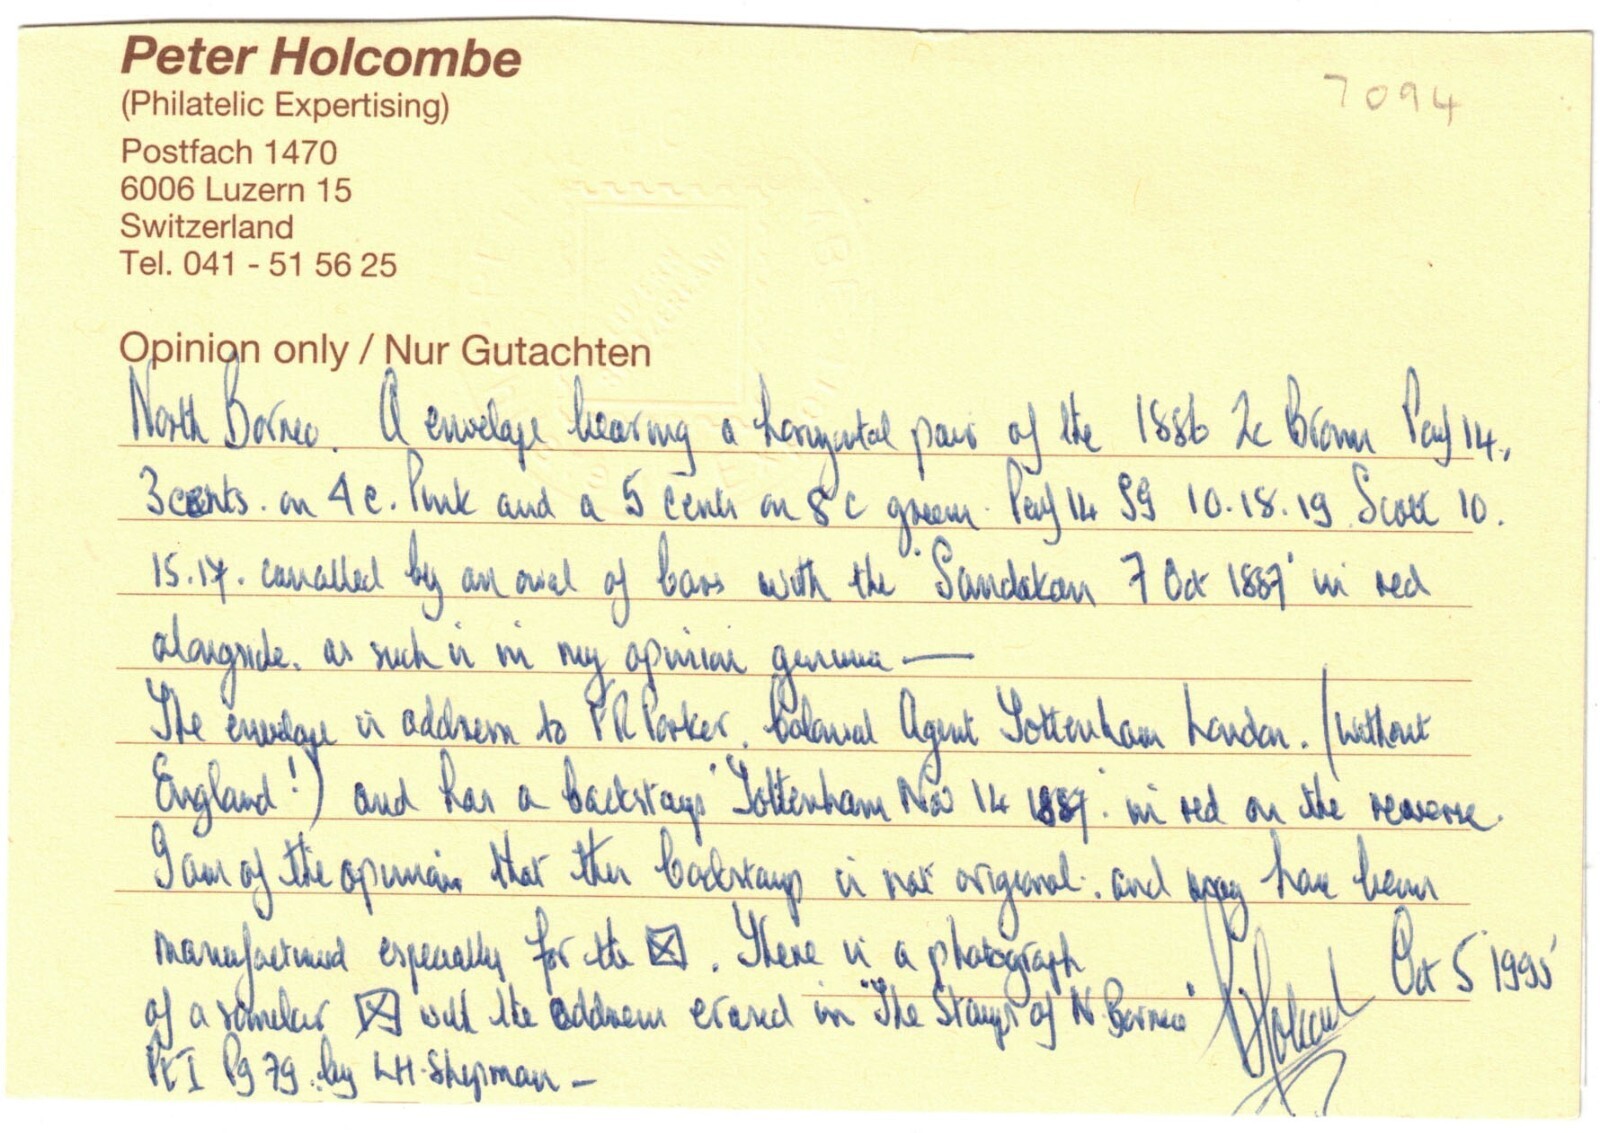 Peter Holcombe
7094
(Philatelic Expertising)
Postfach 1470
6006 Luzern 15
Switzerland
Tel. 041 - 51 56 25
Opinion only / Nur Gutachten
North Borneo. A envelope bearing a horizontal pair of the 1886 2c Brown Perf 14.,
3 cents. on 4c. Pink and a 5 cents on 8c green. Perf 14 SG 10.18.19 Scott 10.
15.17. cancelled by an oval of bars with the 'Sandakan 7 Oct 1887' in red
alongside. as such is in my opinion genuine —
The envelope is address to PR Parker. Colonial Agent Tottenham London. (without
England!) and has a backstamp 'Tottenham Nov 14 1887' in red on the reverse.
I am of the opinion that this backstamp is not original. and may have been
manufactured especially for the ☒. There is a photograph
of a similar ☒ with the address erased in "The Stamps of N Borneo"
Pt I Pg 79. by LH. Shipman —
Oct 5 1995